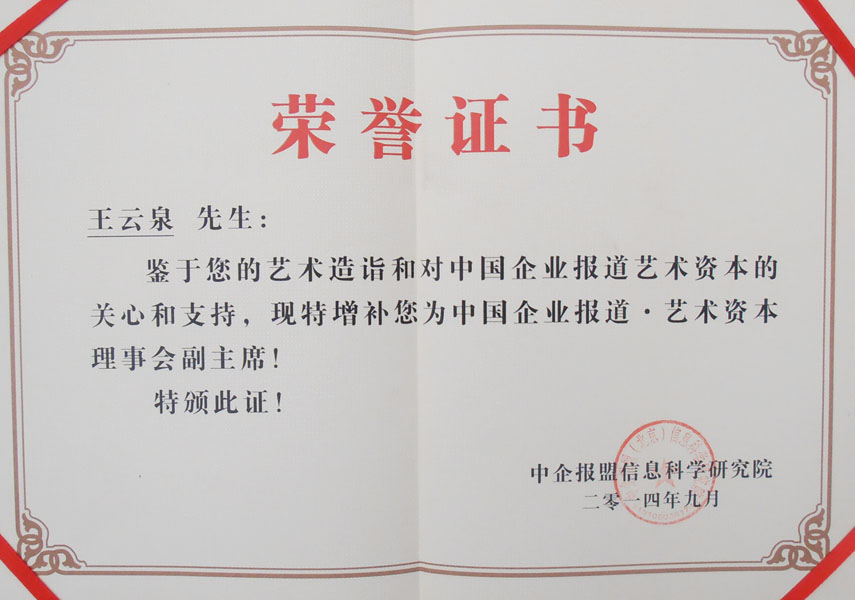 荣誉证书
王云泉 先生：
鉴于您的艺术造诣和对中国企业报道艺术资本的
关心和支持，现特增补您为中国企业报道·艺术资本
理事会副主席！
特颁此证！
中企报盟信息科学研究院
二零一四年九月